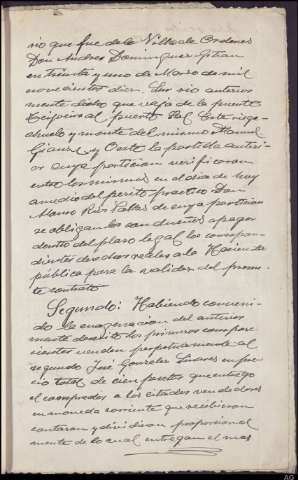 rio que fue de la Villa de Ordenes
Don Andres Dominguez Jetran
en treinta y uno de Marzo de mil
novecientos diez. Sur rio anterior
mente dicho que baja de la puente
al puente Pal Este riega
y monte del mismo Manuel
y Oeste la partida anteri-
or cuya particion verificaron
entre los mismos en el dia de hoy
amedio del perito practico Don
Manos Rios de cuya particion
se obligan los condueños a pagar
dentro del plazo legal los correspon-
dientes derechos reales a la Hacienda
pública para la validez del presen-
te contrato
Segundo: Habiendo conveni-
do la enagenacion del anterior
mente descrito los primeros compare-
cientes venden perpetuamente al
segundo José Gonzalez Linares en pre-
cio total de cien pesetas que entregó
el comprador a los citados vendedores
en moneda corriente que recibieron
contaron y dividiran proporcional
mente de lo cual entregan el mas
AG